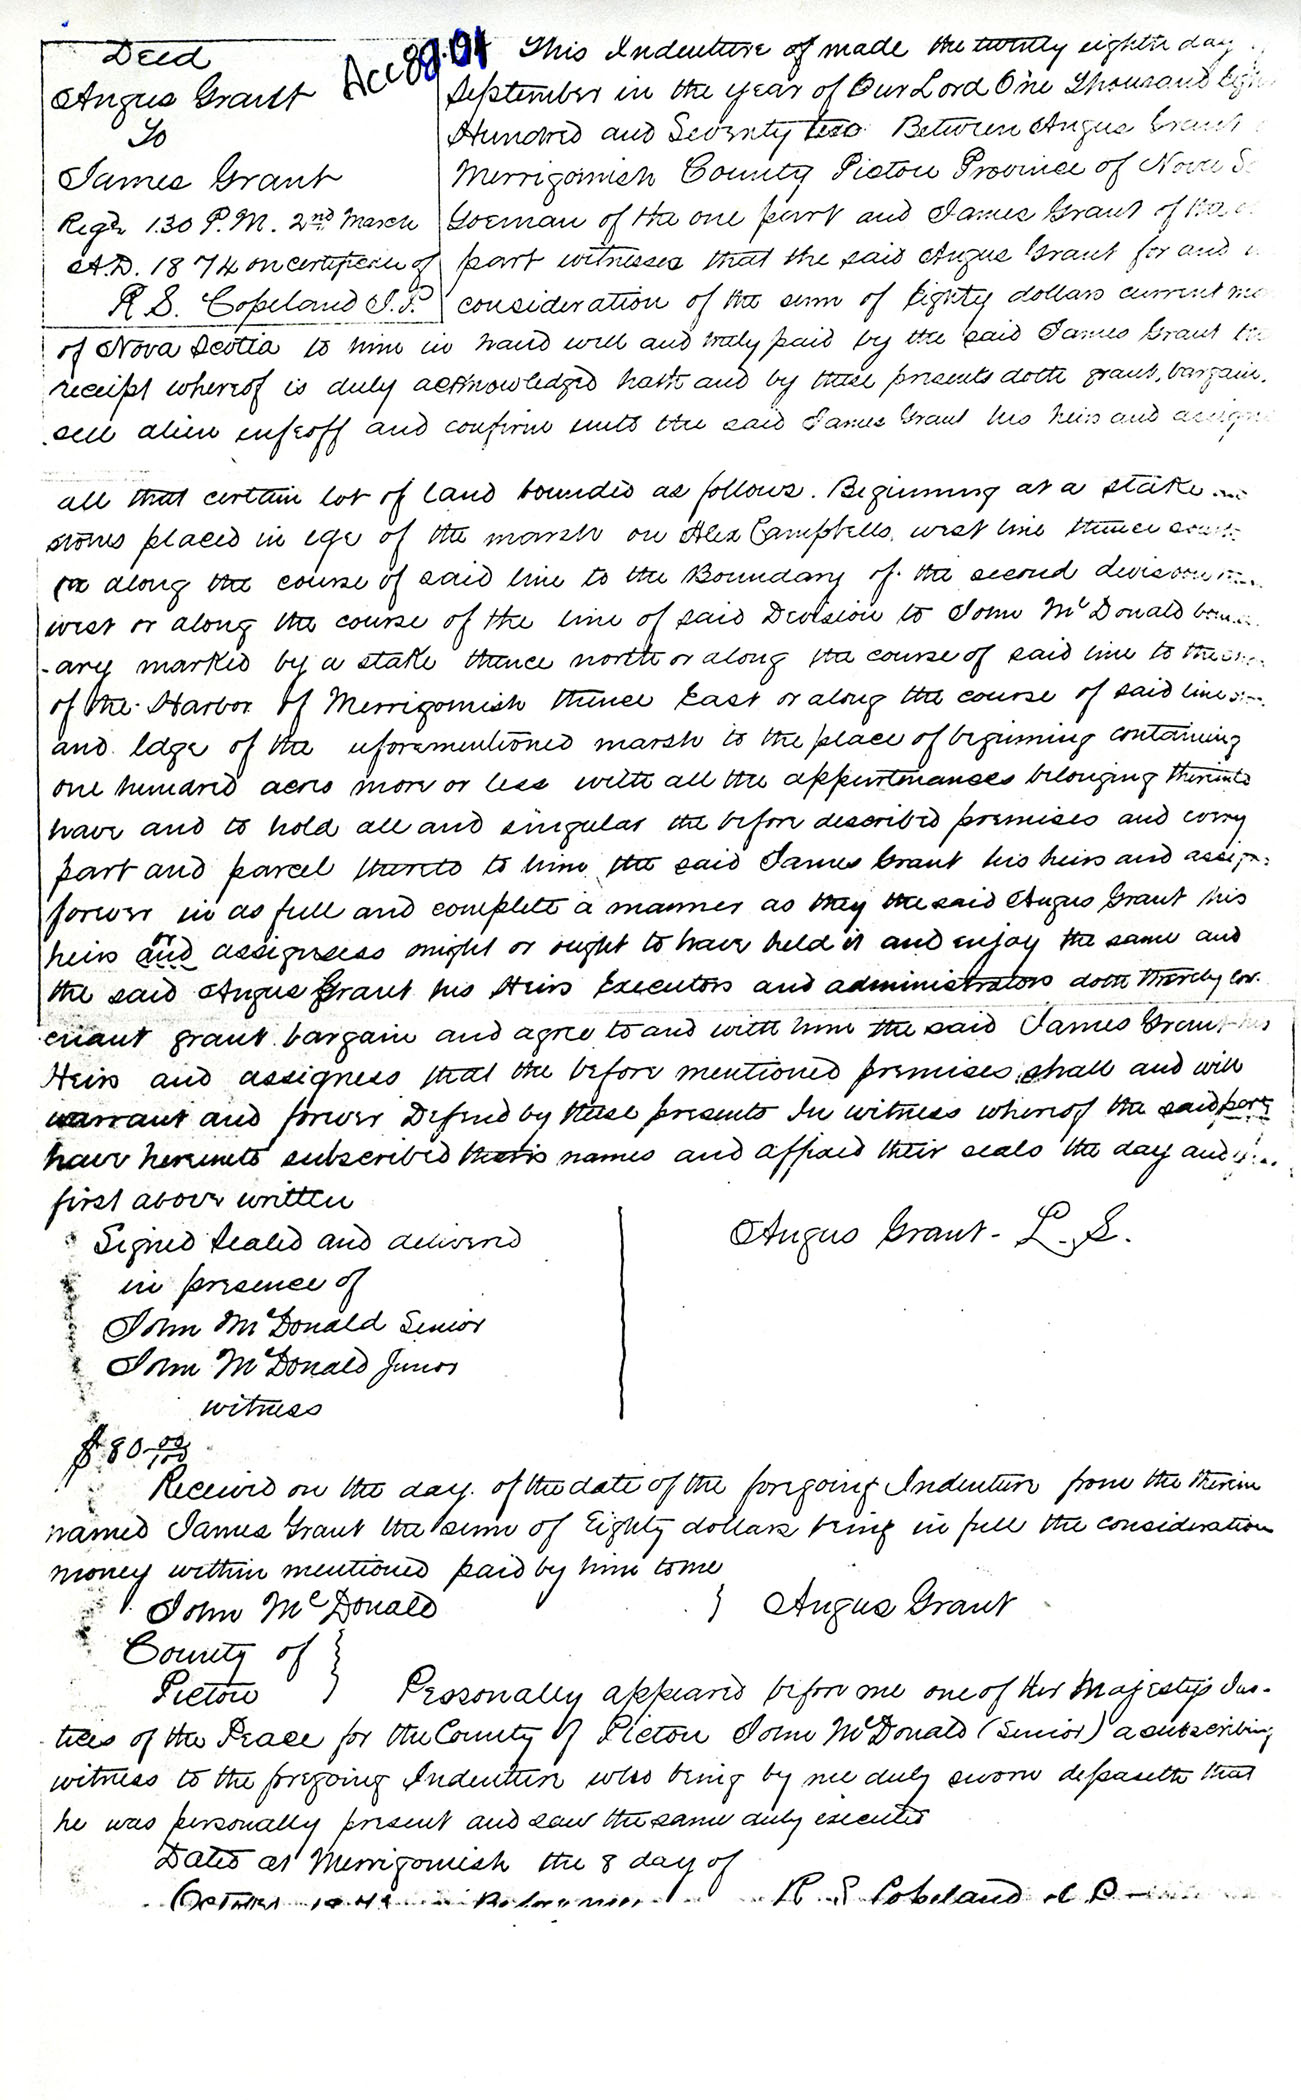 Deed
Angus Grant
To
James Grant
Regd 1.30 P.M. 2nd March
A.D. 1874 on certificate of
R S. Copeland J.P.
Acc 88.01
This Indenture of made the twenty eighth day
September in the year of Our Lord One Thousand
Hundred and Seventy two Between Angus Grant
Merrigomish County Pictou Province of Nova
Yoeman of the one part and James Grant of the
part witnesses that the said Angus Grant for and
consideration of the sum of Eighty dollars current
of Nova Scotia to him in hand well and truly paid by the said James Grant the
receipt whereof is duly acknowledged hath and by these presents doth grant, bargain,
sell alien enfeoff and confirm unto the said James Grant his heirs and assigns
all that certain lot of land bounded as follows. Beginning at a stake and
stones placed in ege of the marsh on Alex Campbells west line thence south
or along the course of said line to the Boundary of the second division
west or along the course of the line of said Division to John McDonald
-ary marked by a stake thence north or along the course of said line to the
of the Harbor of Merrigomish thence East or along the course of said line
and Edge of the aforementioned marsh to the place of beginning containing
one hundred acres more or less with all the appurtenances belonging thereunto
have and to hold all and singular the before described premises and every
part and parcel thereto to him the said James Grant his heirs and assigns
forever in as full and complete a manner as they the said Angus Grant his
heirs and or assigness might or ought to have held it and enjoy the same and
the said Angus Grant his Heirs Executors and administrators doth thereby cov-
enant grant bargain and agree to and with him the said James Grant his
Heirs and assigness that the before mentioned premises shall and will
warrant and forever Defend by these presents In witness whereof the said
have hereunto subscribed theris names and affixed their seals the day and
first above written
Signed Sealed and delivered
in presence of
John McDonald Senior
John McDonald Junior
witness
Angus Grant - L. S.
$80 00/100
Received on the day of the date of the foregoing Indenture from the therein
named James Grant the sum of Eighty dollars being in full the consideration
money within mentioned paid by him to me
John McDonald } Angus Grant
County of }
Pictou } Personally appeared before me one of Her Majestys Jus-
tices of the Peace for the County of Pictou John McDonald (Senior) a subscribing
witness to the foregoing Indenture who being by me duly sworn deposeth that
he was personally present and saw the same duly executed
Dated at Merrigomish the 8 day of
October R S Copeland J P